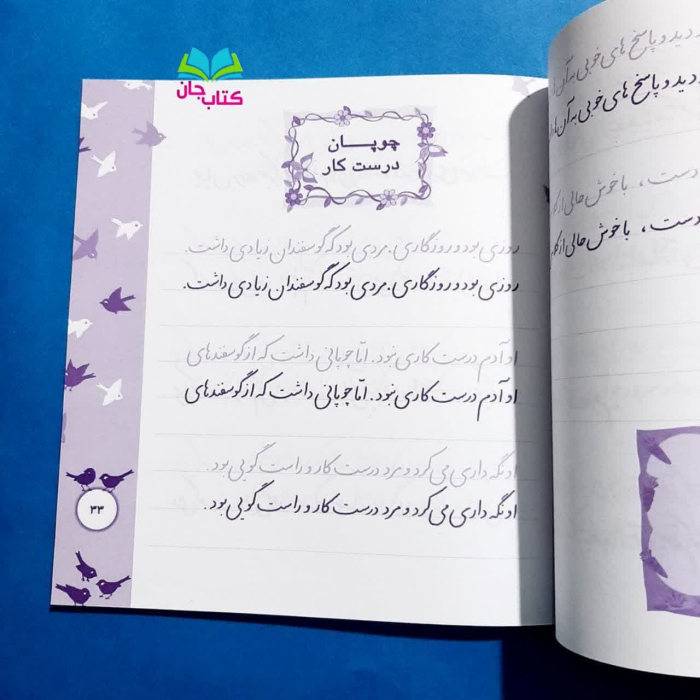 کتاب جان
چوپـــان
درست کار
روزی بود و روزگاری. مردی بود که گوسفندان زیادی داشت.
روزی بود و روزگاری. مردی بود که گوسفندان زیادی داشت.
او آدم درست کاری نبود. امّا چوپانی داشت که از گوسفندهای
او آدم درست کاری نبود. امّا چوپانی داشت که از گوسفندهای
او نگه داری می کرد و مرد درست کار و راست گویی بود.
او نگه داری می کرد و مرد درست کار و راست گویی بود.
۳۳
دید و پاسخ های خوبی به آن
دید و پاسخ های خوبی به آن ها
دست، با خوش حالی از
دست، با خوش حالی از